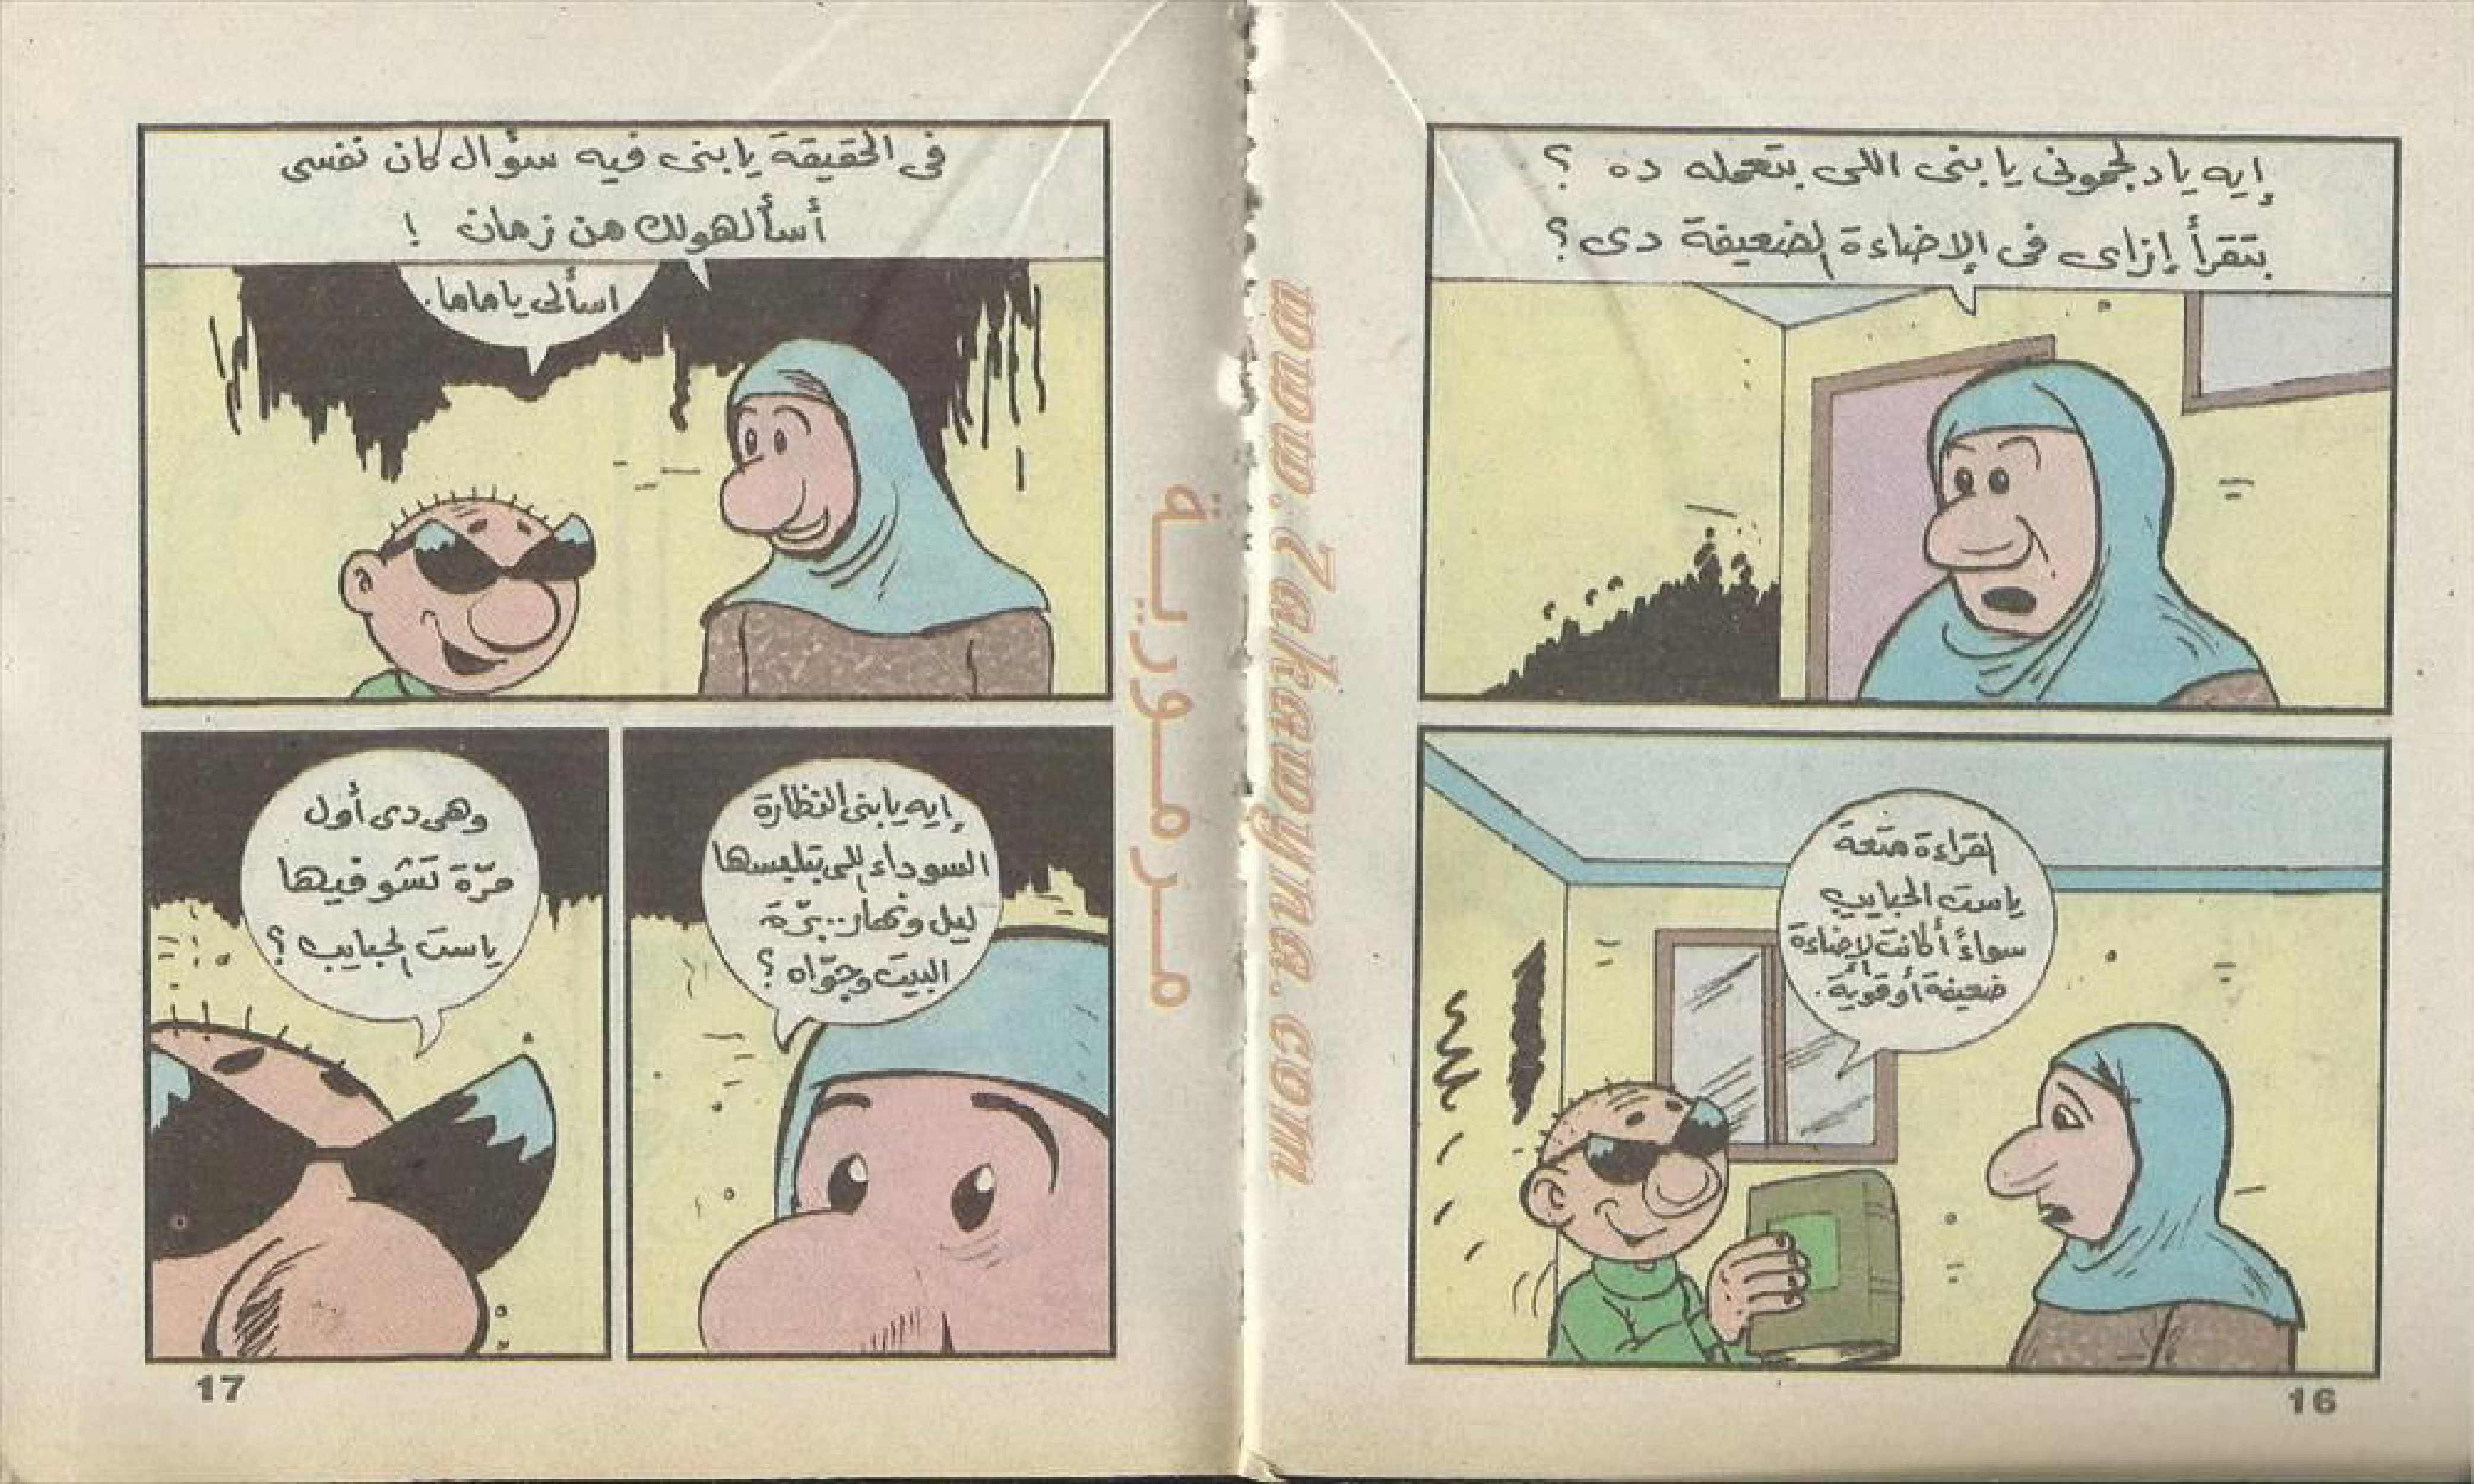 إيه يا دلجموني يا بنى اللى بتعمله ده ؟
بتقرأ إزاى فى الإضاءة الضعيفة دى ؟
القراءة متعة
ياست الحبايب
سواءً أكانت الإضاءة
ضعيفة أو قوية.
16
فى الحقيقة يا بنى فيه سؤال كان نفسى
أسألهولك من زمان !
اسألى يا ماما.
إيه يابنى النظارة
السوداء اللى بتلبسها
ليل ونهار.. برّة
البيت وجوّاه ؟
وهى دى أول
مرّة تشوفيها
ياست الحبايب ؟
17
مرمورية
www.Zakawyna.com